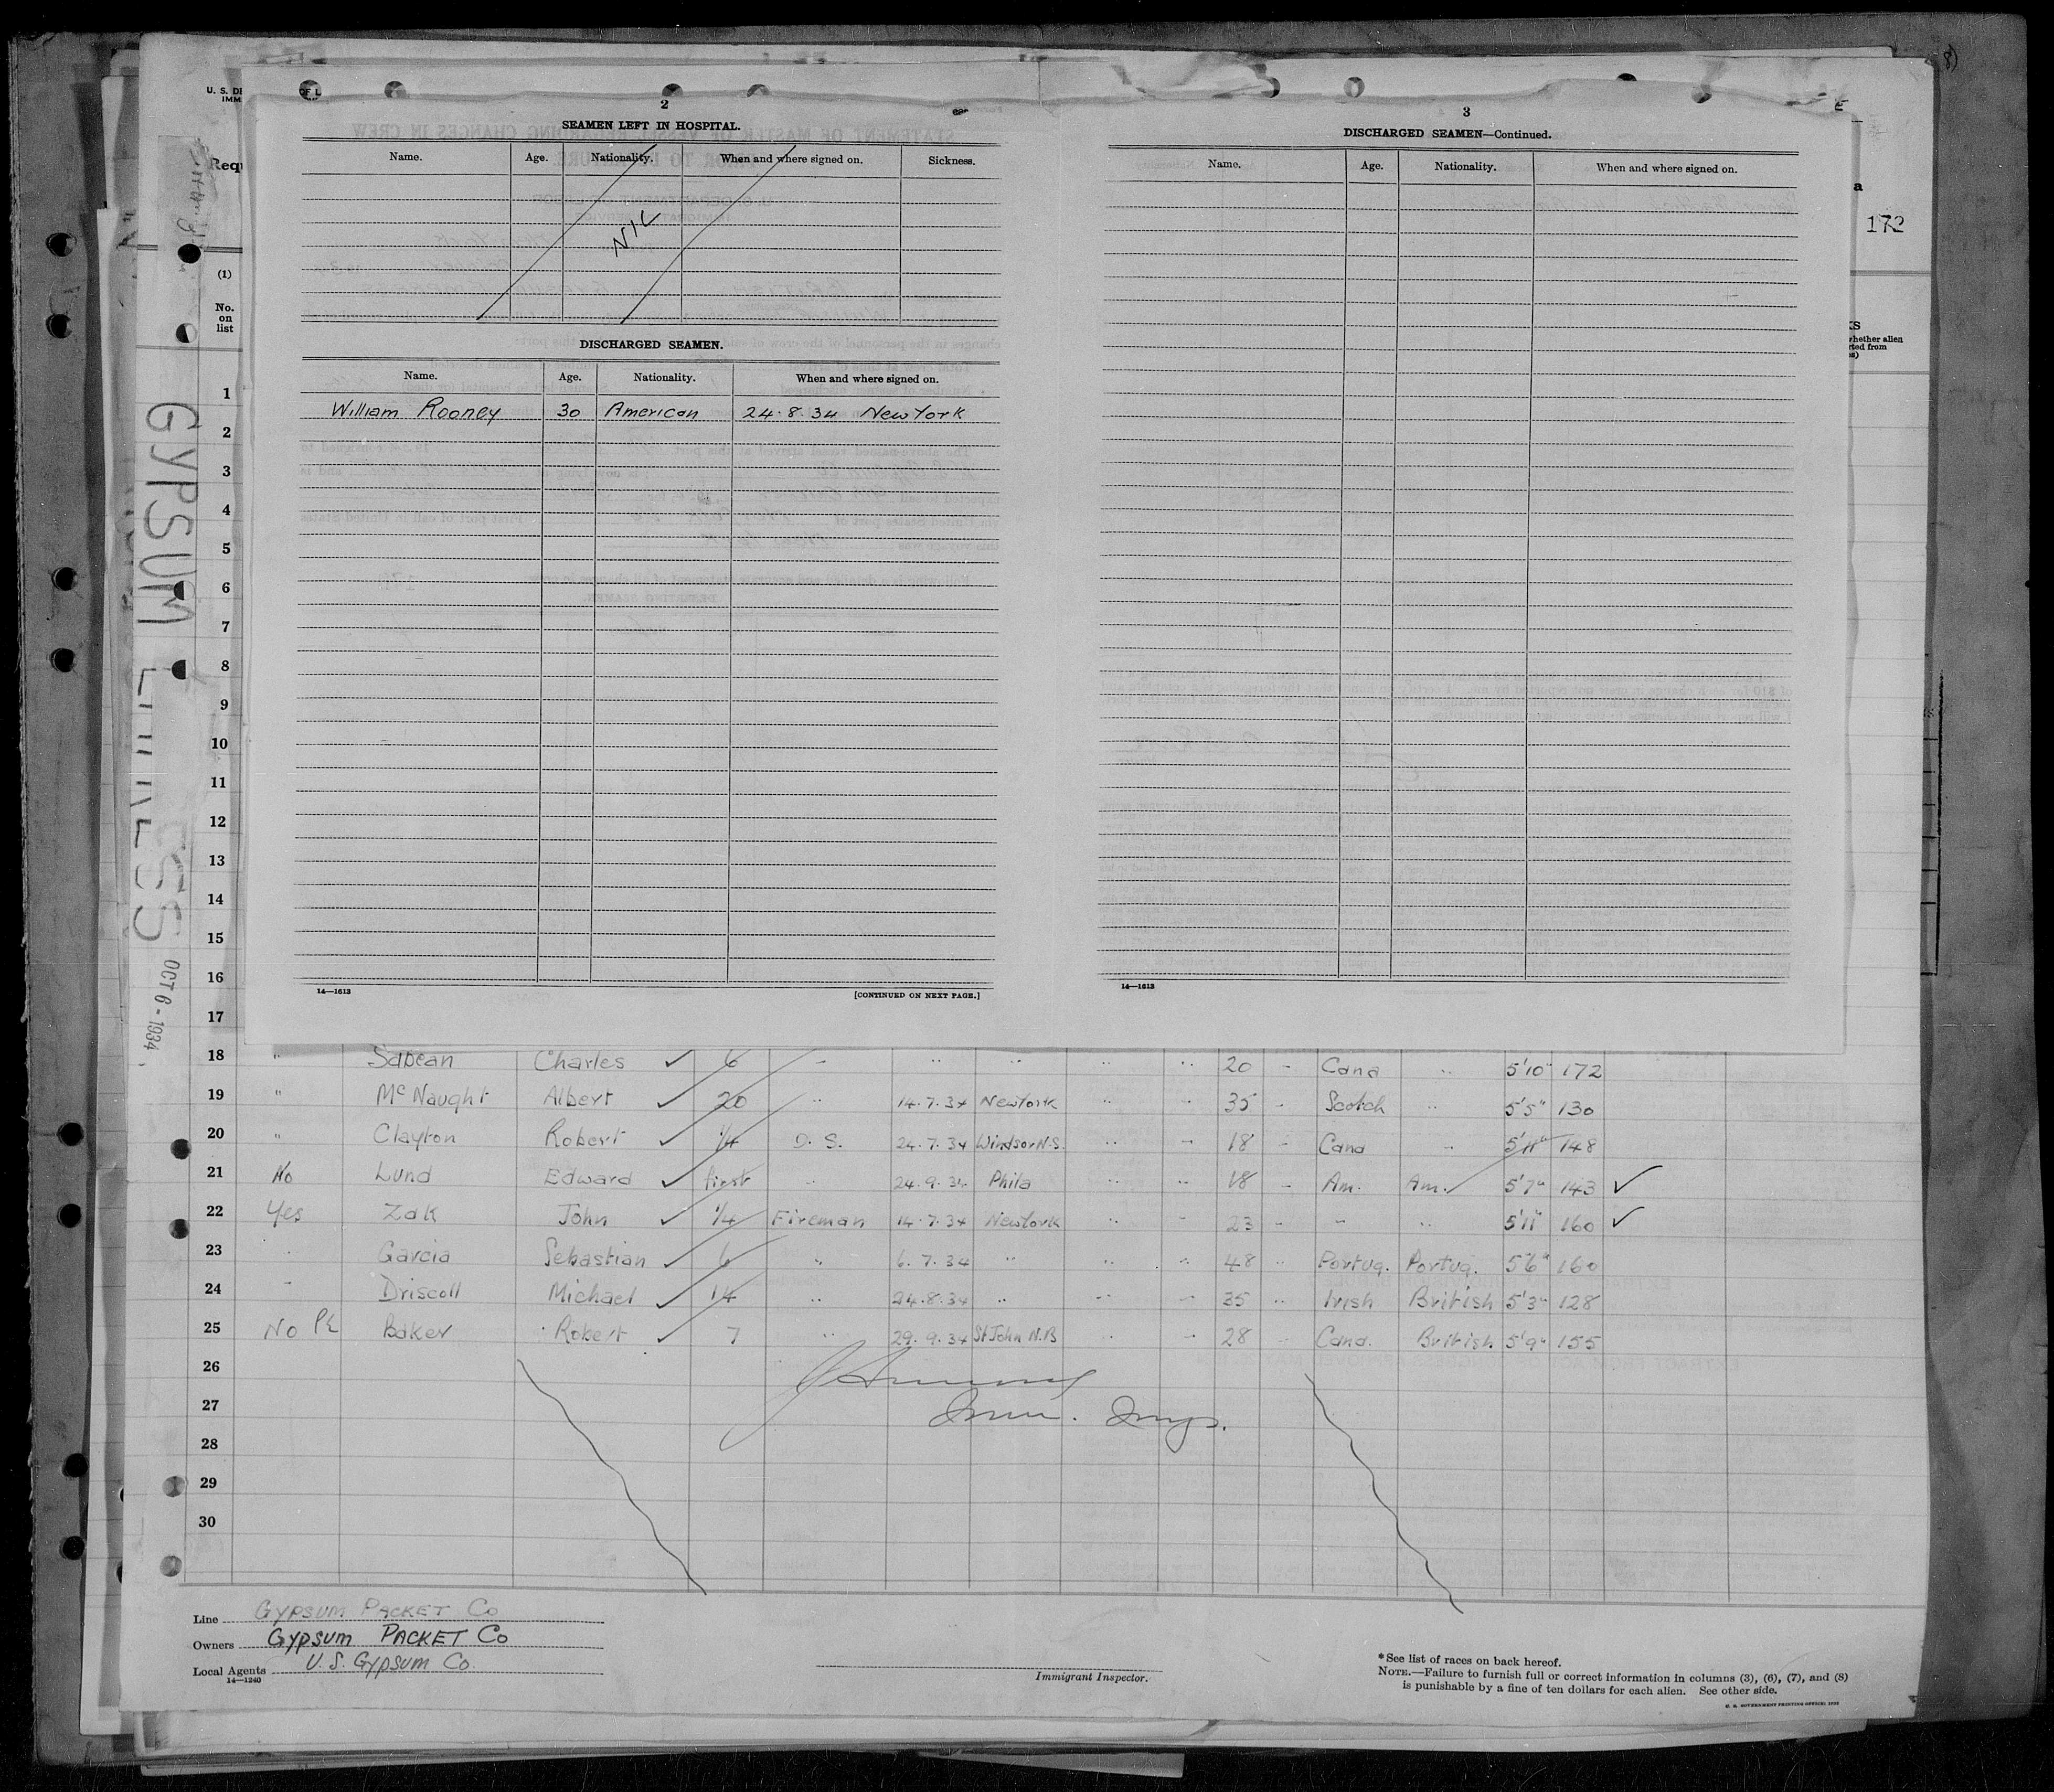 2
SEAMEN LEFT IN HOSPITAL.
Name. Age. Nationality. When and where signed on. Sickness.
NIL
DISCHARGED SEAMEN.
Name. Age. Nationality. When and where signed on.
William Rooney 30 American 24.8.34 New York
14—1613 [CONTINUED ON NEXT PAGE.]
3
DISCHARGED SEAMEN—Continued.
Name. Age. Nationality. When and where signed on.
14—1613
172
(1)
No. on list
GYPSUM
OCT 6 - 1934
1
2
3
4
5
6
7
8
9
10
11
12
13
14
15
16
17
18 " Sabean Charles ✓ 6 " " " " " 20 - Cana " 5'10" 172
19 " McNaught Albert ✓ 20 " 14.7.34 New York " " 35 - Scotch " 5'5" 130
20 " Clayton Robert ✓ 1/4 D.S. 24.7.34 Windsor N.S. " " 18 - Cana " 5'11" 148
21 No Lund Edward ✓ first " 24.9.34 Phila " " 18 - Am. Am. 5'7" 143 ✓
22 Yes Zak John ✓ 1/4 Fireman 14.7.34 New York " " 23 - " " 5'11" 160 ✓
23 " Garcia Sebastian ✓ 6 " 6.7.34 " " " 48 " Portug. Portug. 5'6" 160
24 " Driscoll Michael ✓ 14 " 24.8.34 " " " 35 " Irish British 5'3" 128
25 No Baker Robert ✓ 7 " 29.9.34 St John N.B " " 28 - Cana. British 5'9" 155
26
27 Imm. Insp.
28
29
30
Line GYPSUM PACKET CO
Owners GYPSUM PACKET CO
Local Agents U.S. GYPSUM CO.
14—1240
Immigrant Inspector.
*See list of races on back hereof.
NOTE.—Failure to furnish full or correct information in columns (3), (6), (7), and (8)
is punishable by a fine of ten dollars for each alien. See other side.
U. S. GOVERNMENT PRINTING OFFICE: